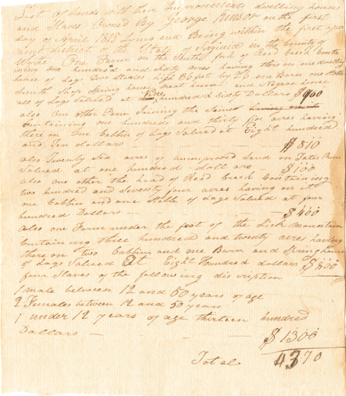 List of lands with their Improvements dwelling houses
and Slaves Owned By George Rinsor on the first
day of April 1815 Lying and Being within the first
district of the State of Virginia in the County
Wythe One Farm on the South fork of Reed Creek
one hundred and sixty acres having thereon one dwelling
house of Logs two Stories high 26 feet by 26 one Barn one
Smith Shop Spring house and Negroe house
all of Logs Valued at Nine hundred & sixty Dollars $960
also One other Farm Joining the Same
Containing one hundred and thirty five acres having
there on One Cabbin of Logs Valued at Eight hundred
and Ten dollars $810
also Twenty Six acres of unimproved land on
Valued at one hundred dollars $100
also one other the head of Reed Creek Containing
two hundred and Seventy four acres having on it
one Cabbin and one Stable of Logs Valued at four
hundred Dollars — $400
also one Farm under the foot of the Lick Mountain
Containing three hundred and twenty acres having
there on two Cabbins and one Barn and Spring house
of Logs Valued at Eight Hundred dollars $800
four Slaves of the following discription
1 male between 12 and 50 years of age
2 Females between 12 and 50 years
1 under 12 years of age thirteen hundred
Dollars — $1300
Total 4370